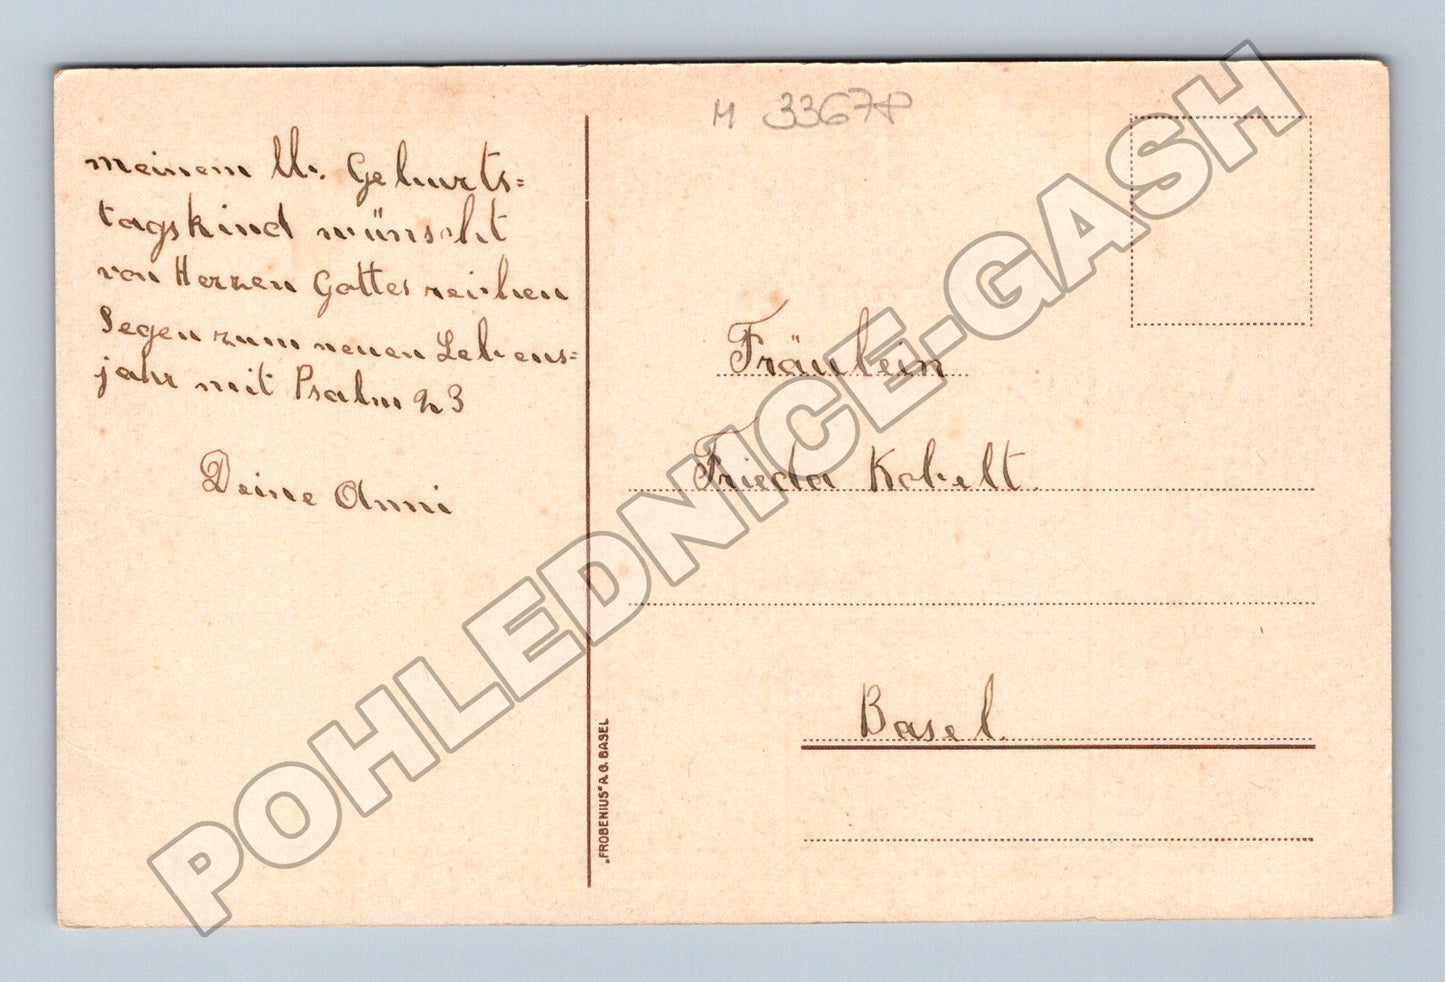 M 3367P
meinem lb. Geburts=
tagskind wünscht
von Herzen Gottes reichen
Segen zum neuen Lebens=
jahr mit Psalm 23
Deine Anni
Fräulein
Frieda Kobelt
Basel.
„FROBENIUS" A.G. BASEL
POHLEDNICE-GASH